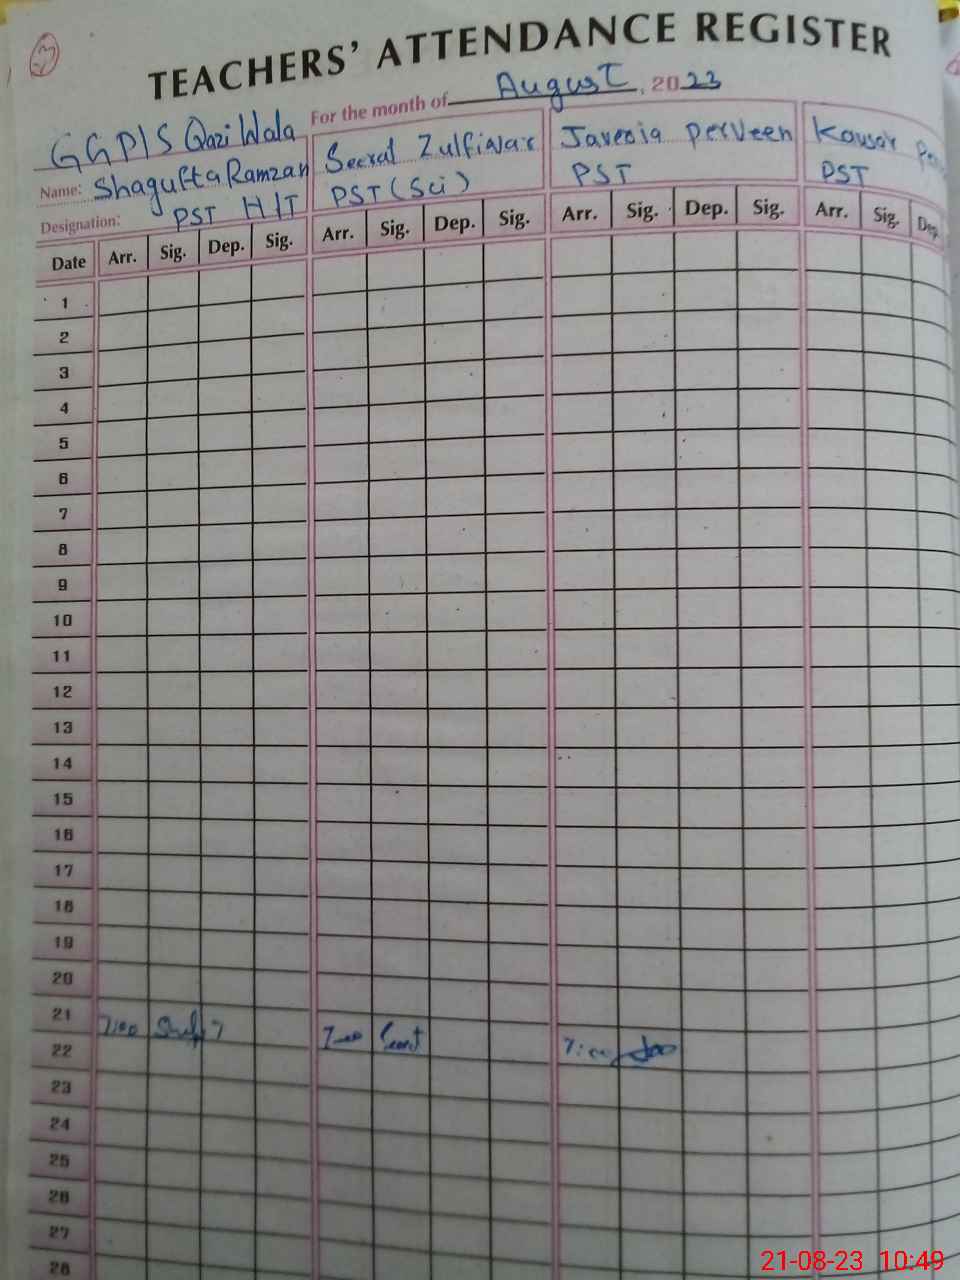 TEACHERS' ATTENDANCE REGISTER
For the month of August, 2023
GGP/S Qazi Wala
Name: Shagufta Ramzan
Designation: PST H/T
Seerat Zulfiqar
PST (Sci)
Javeria perveen
PST
Kousar
PST
Date Arr. Sig. Dep. Sig. Arr. Sig. Dep. Sig. Arr. Sig. Dep. Sig. Arr. Sig. Dep.
1
2
3
4
5
6
7
8
9
10
11
12
13
14
15
16
17
18
19
20
21 7:00 7:00 Seerat 7:00
22
23
24
25
26
27
28
21-08-23 10:49